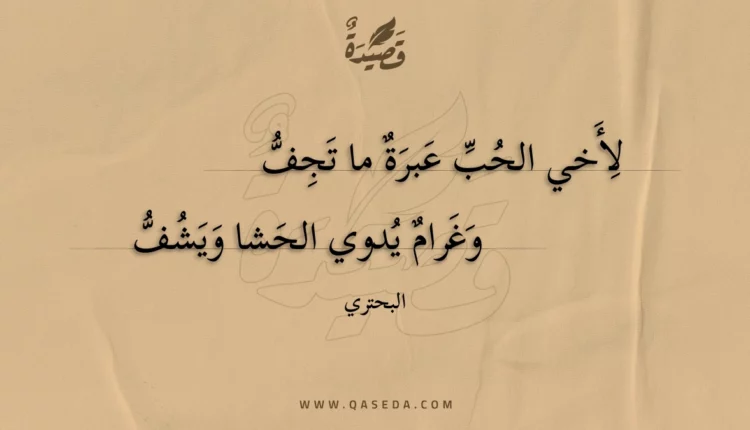 قَصِيدَةٌ
لِأَخي الحُبِّ عَبرَةٌ ما تَجِفُّ
وَغَرامٌ يُدوي الحَشا وَيَشُفُّ
البحتري
WWW.QASEDA.COM